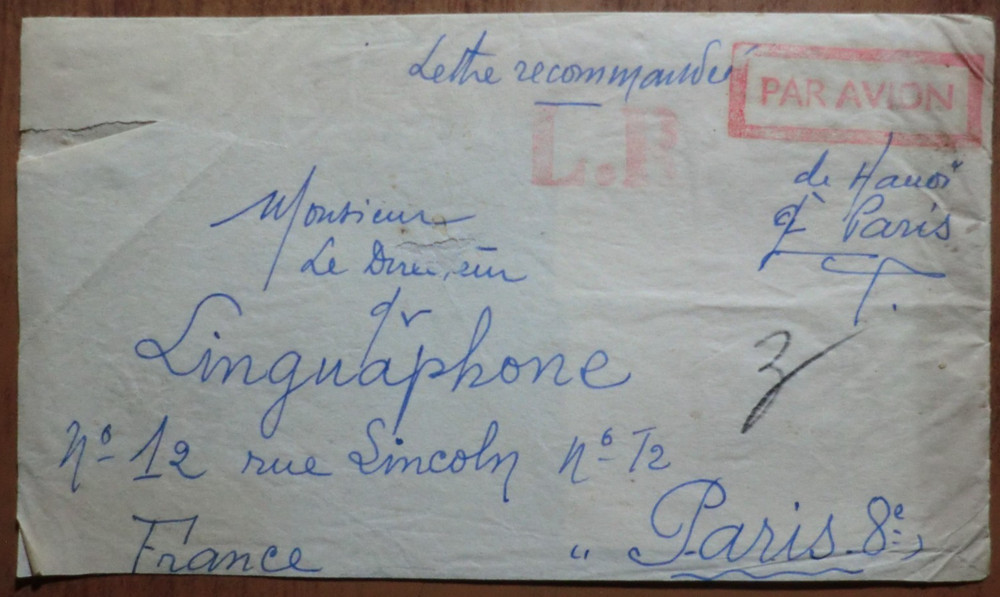 Lettre recommandée
PAR AVION
L.R
de Hanoï
à Paris
Monsieur
Le Directeur
de
Linguaphone
Nº 12 rue Lincoln Nº T2
France " Paris 8e
3